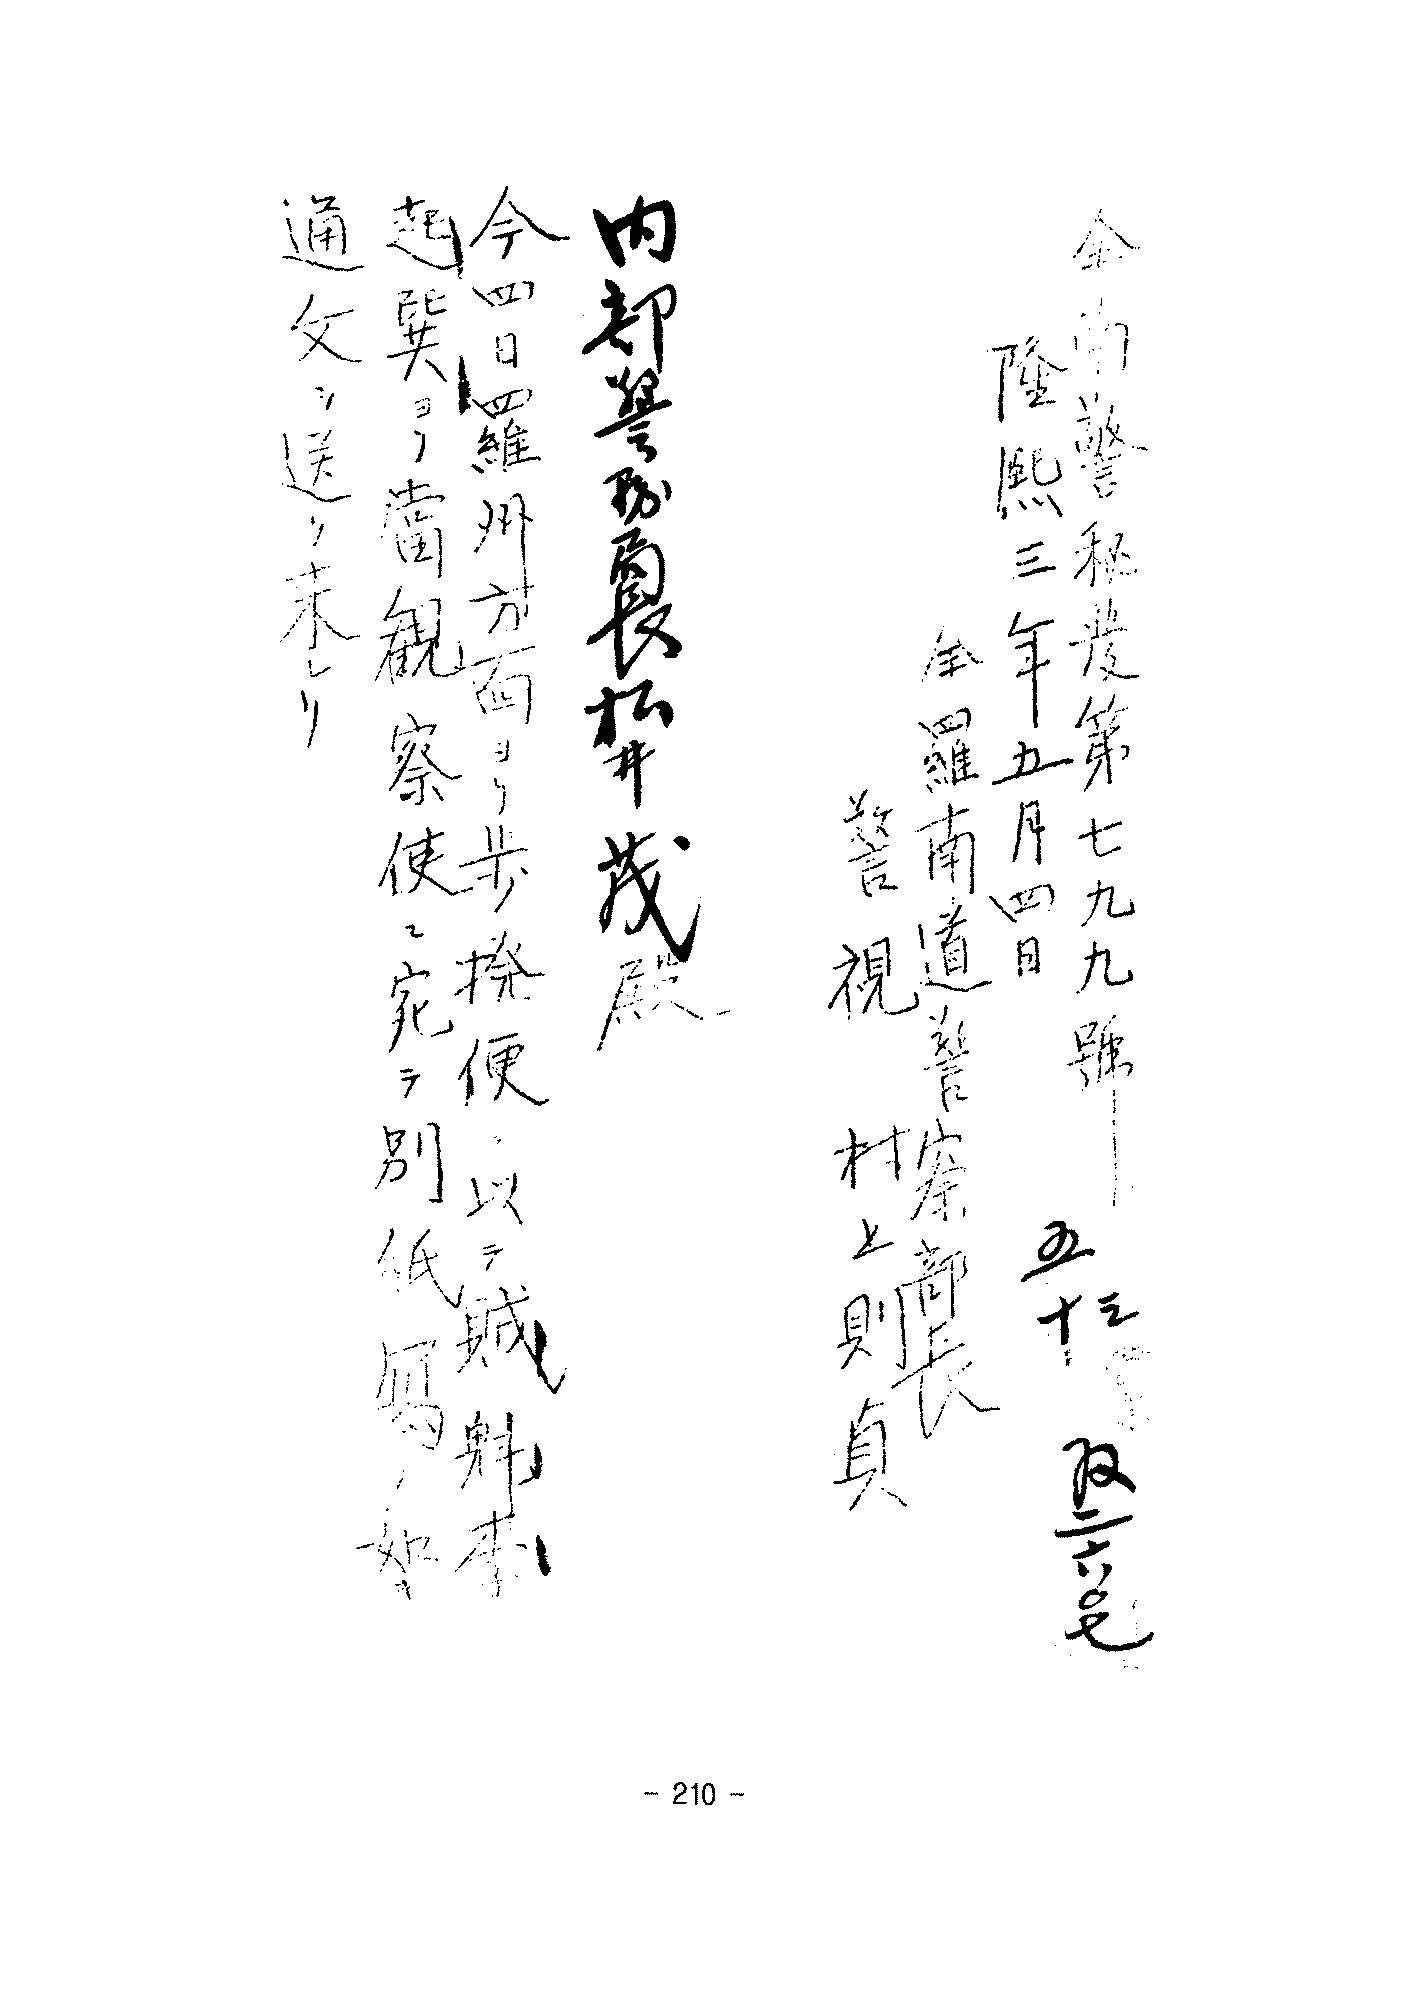 全南警秘發第七九九號ノ一
隆熙三年五月四日
五十三
収二六〇七
全羅南道警察部長
警視 村上則貞
内部警務局長松井茂殿
今四日羅州方面ヨリ歩撥便ヲ以テ賊魁李
起巽ヨリ當觀察使ニ宛テ別紙寫ノ如キ
通文ヲ送リ来レリ
- 210 -